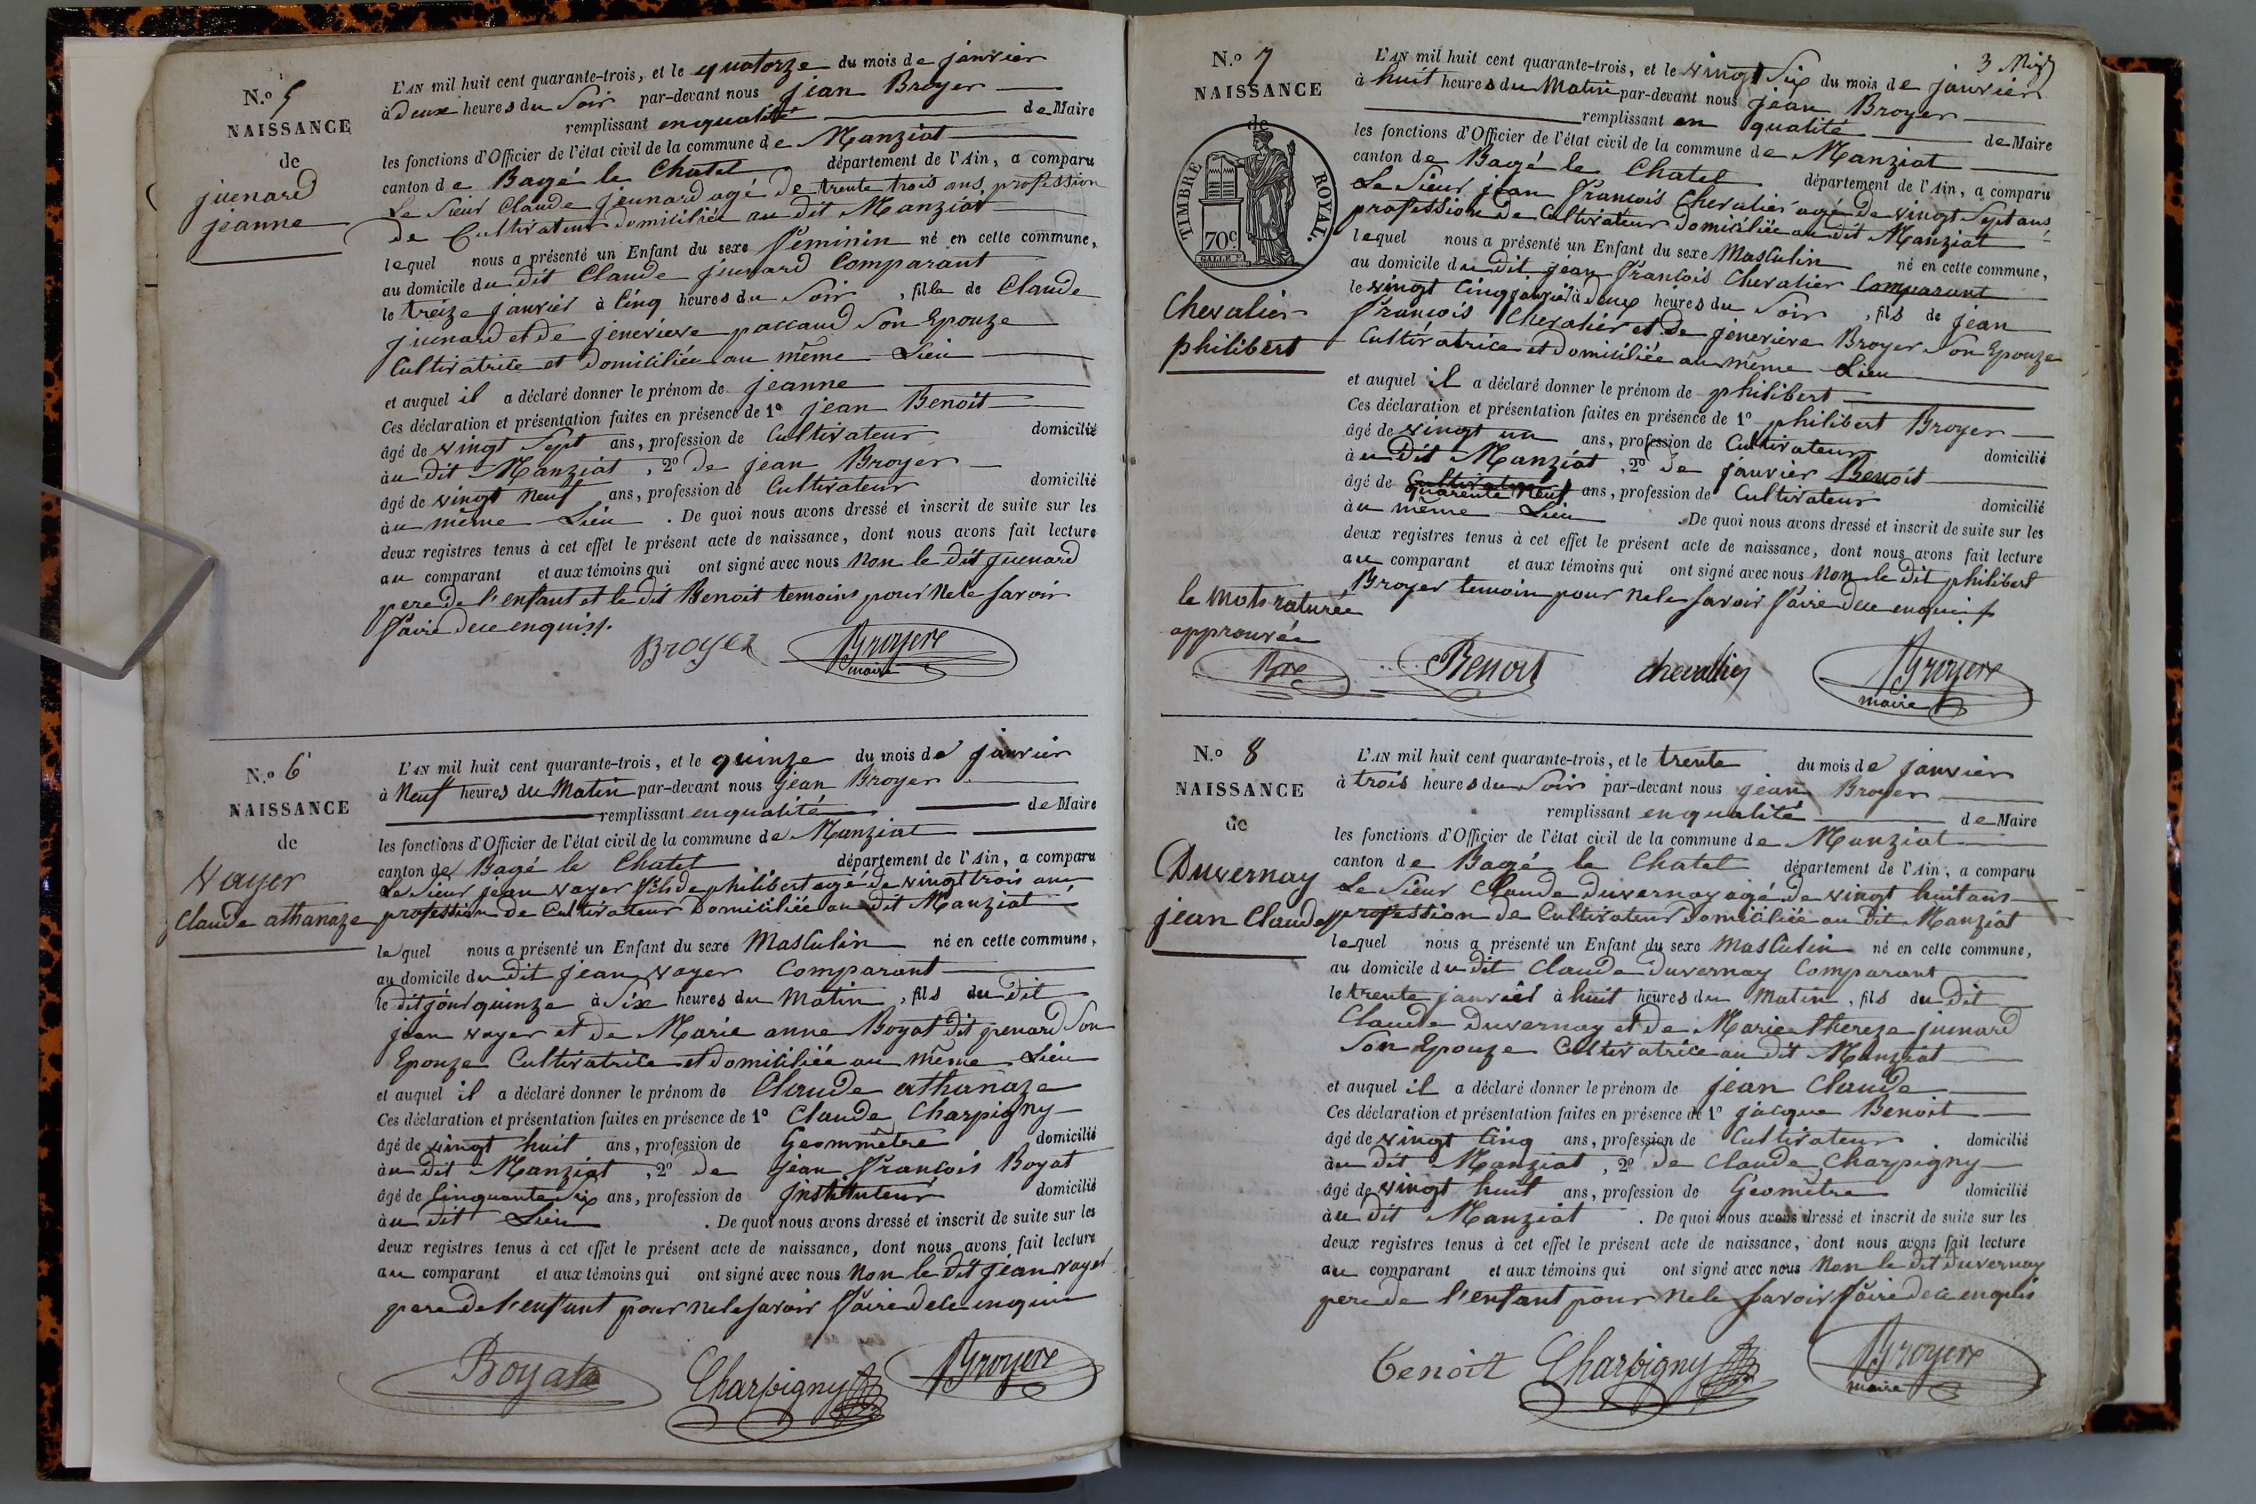 N.º 5
NAISSANCE
de
juenard
jeanne
L'AN mil huit cent quarante-trois, et le quatorze du mois de janvier
à deux heures du Soir par-devant nous jean Broyer
remplissant enqualité de Maire
les fonctions d'Officier de l'état civil de la commune de Manziat
canton de Bagé le Chatel département de l'Ain, a comparu
Le Sieur Claude juenard agé de trente trois ans, profession
de Cultivateur domiciliée au dit Manziat
lequel nous a présenté un Enfant du sexe féminin né en cette commune,
au domicile du dit Claude juenard Comparant
le treize janvier à Cinq heures du Soir, fille de Claude
juenard et de jenevieve paccaud Son Epouze
Cultivatrice et domiciliée au même Lieu
et auquel il a déclaré donner le prénom de jeanne
Ces déclaration et présentation faites en présence de 1º jean Benoit
âgé de vingt Sept ans, profession de Cultivateur domicilié
àu dit Manziat, 2º de jean Broyer
âgé de vingt neuf ans, profession de Cultivateur domicilié
àu même Lieu. De quoi nous avons dressé et inscrit de suite sur les
deux registres tenus à cet effet le présent acte de naissance, dont nous avons fait lecture
au comparant et aux témoins qui ont signé avec nous Non le dit juenard
pere de l'enfant et le dit Benoit temoins pour Nele Savoir
faire dece enquis
Broyer Broyere
maire
N.º 6
NAISSANCE
de
Vayer
Claude athanaze
L'AN mil huit cent quarante-trois, et le quinze du mois de janvier
à Neuf heures du Matin par-devant nous jean Broyer
remplissant enqualité de Maire
les fonctions d'Officier de l'état civil de la commune de Manziat
canton de Bagé le Chatel département de l'Ain, a comparu
Le Sieur jean vayer fils de philibert agé de vingt trois ans
profession de Cultivateur Domiciliée au dit Manziat
lequel nous a présenté un Enfant du sexe Masculin né en cette commune,
au domicile du dit jean vayer Comparant
le dit jour quinze à Six heures du Matin, fils du dit
jean vayer et de Marie anne Boyat dit grenard Son
Epouze Cultivatrice et domiciliée au même Lieu
et auquel il a déclaré donner le prénom de Claude athanaze
Ces déclaration et présentation faites en présence de 1º Claude Charpigny
âgé de vingt huit ans, profession de Geommêtre domicilié
àu dit Manziat, 2º de jean françois Boyat
âgé de Cinquante Six ans, profession de jnstituteur domicilié
àu dit Lieu. De quoi nous avons dressé et inscrit de suite sur les
deux registres tenus à cet effet le présent acte de naissance, dont nous avons fait lecture
au comparant et aux témoins qui ont signé avec nous Non le dit jean vayer
pere de l'enfant pour nele savoir faire dece enquis
Boyat Charpigny Broyere
3 
N.º 7
NAISSANCE
de
TIMBRE ROYAL.
70c.
Chevalier
philibert
L'AN mil huit cent quarante-trois, et le vingt Six du mois de janvier
à huit heures du Matin par-devant nous jean Broyer
remplissant en qualité de Maire
les fonctions d'Officier de l'état civil de la commune de Manziat
canton de Bagé le Chatel département de l'Ain, a comparu
Le Sieur jean françois Chevalier agé de vingt Sept ans
profession de Cultivateur domiciliée au dit Manziat
lequel nous a présenté un Enfant du sexe Masculin né en cette commune,
au domicile du dit jean françois Chevalier Comparant
le vingt Cinq janvier à deux heures du Soir, fils de jean
françois Chevalier et de jenevieve Broyer Son Epouze
Cultivatrice et domiciliée au même Lieu
et auquel il a déclaré donner le prénom de philibert
Ces déclaration et présentation faites en présence de 1º philibert Broyer
âgé de vingt un ans, profession de Cultivateur domicilié
àu dit Manziat, 2º de janvier Benoit
âgé de Cultivateur quarente Neuf ans, profession de Cultivateur domicilié
àu même Lieu. De quoi nous avons dressé et inscrit de suite sur les
deux registres tenus à cet effet le présent acte de naissance, dont nous avons fait lecture
au comparant et aux témoins qui ont signé avec nous Non le dit philibert
Broyer temoin pour Nele Savoir faire dece enquis
le Mots raturée
approuvée
Bre Benoit chevallier Broyere
maire
N.º 8
NAISSANCE
de
Duvernay
jean Claude
L'AN mil huit cent quarante-trois, et le trente du mois de janvier
à trois heures du Soir par-devant nous jean Broyer
remplissant enqualité de Maire
les fonctions d'Officier de l'état civil de la commune de Manziat
canton de Bagé le Chatel département de l'Ain, a comparu
Le Sieur Claude Duvernay agé de vingt huit ans
profession de Cultivateur domiciliée au dit Manziat
lequel nous a présenté un Enfant du sexe Masculin né en cette commune,
au domicile du dit Claude Duvernay Comparant
le trente janvier à huit heures du Matin, fils du dit
Claude Duvernay et de Marie thereze juenard
Son Epouze Cultivatrice au dit Manziat
et auquel il a déclaré donner le prénom de jean Claude
Ces déclaration et présentation faites en présence de 1º jacque Benoit
âgé de vingt Cinq ans, profession de Cultivateur domicilié
àu dit Manziat, 2º de Claude Charpigny
âgé de vingt huit ans, profession de Géomêtre domicilié
àu dit Manziat. De quoi nous avons dressé et inscrit de suite sur les
deux registres tenus à cet effet le présent acte de naissance, dont nous avons fait lecture
au comparant et aux témoins qui ont signé avec nous Non le dit Duvernay
pere de l'enfant pour Nele Savoir faire de ce enquis
Benoit Charpigny Broyere
maire